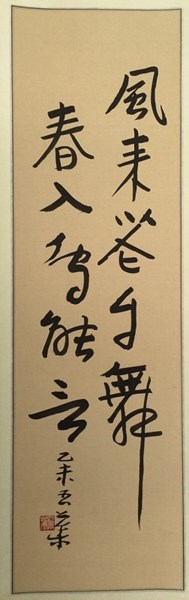 風来花自舞
春入鳥能言
乙未